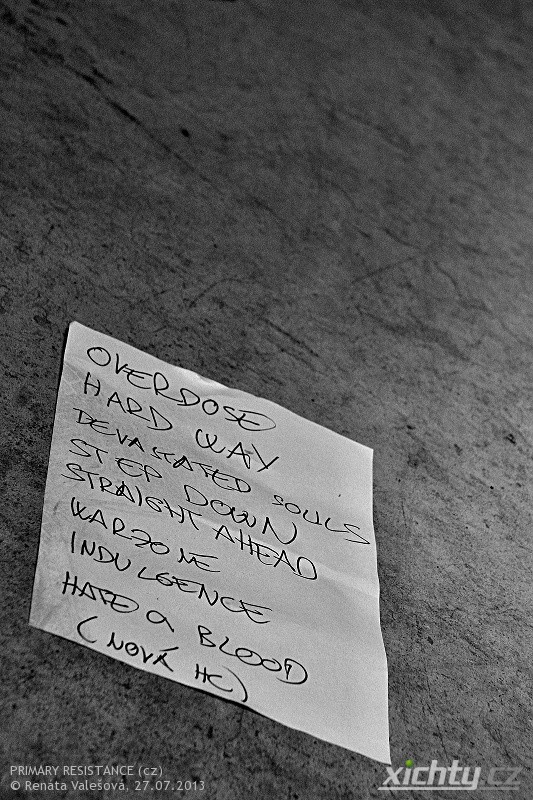 OVERDOSE
HARD WAY
DEVASTATED SOULS
STEP DOWN
STRAIGHT AHEAD
WARZONE
INDULGENCE
HATE A BLOOD
(NOVÁ HC)
PRIMARY RESISTANCE (cz)
© Renata Valešová, 27.07.2013
xichty.cz